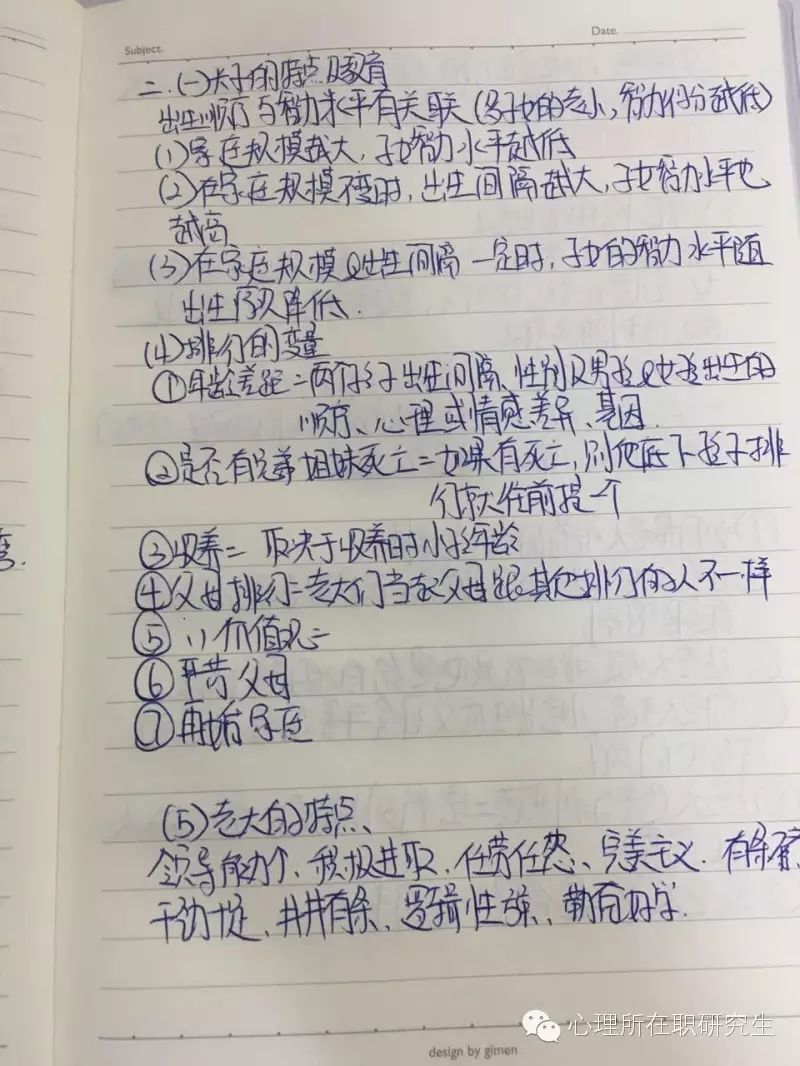 Subject.
Date.
二.(一)长子的特点及教育
出生顺序与智力水平有关联(多子女的老小,智力得分越低)
(1)家庭规模越大,子女智力水平越低
(2)在家庭规模不变时,出生间隔越大,子女智力水平也
越高
(3)在家庭规模&出生间隔一定时,子女的智力水平随
出生序次降低.
(4)排行的变量
①年龄差距=两个孩子出生间隔、性别及男孩&女孩出生的
顺序、心理或情感差异、基因.
②是否有兄弟姐妹死亡=如果有死亡,则他底下孩子排
行就往前提一个
③收养= 取决于收养时小孩年龄
④父母排行=老大们当起父母跟其他排行的人不一样
⑤〃价值观=
⑥平苛父母
⑦再婚家庭
(5)老大的特点、
领导能力个、积极进取、任劳任怨、完美主义.有条
干劲十足、井井有条、逻辑性强、勤奋好学.
心理所在职研究生
design by gimen